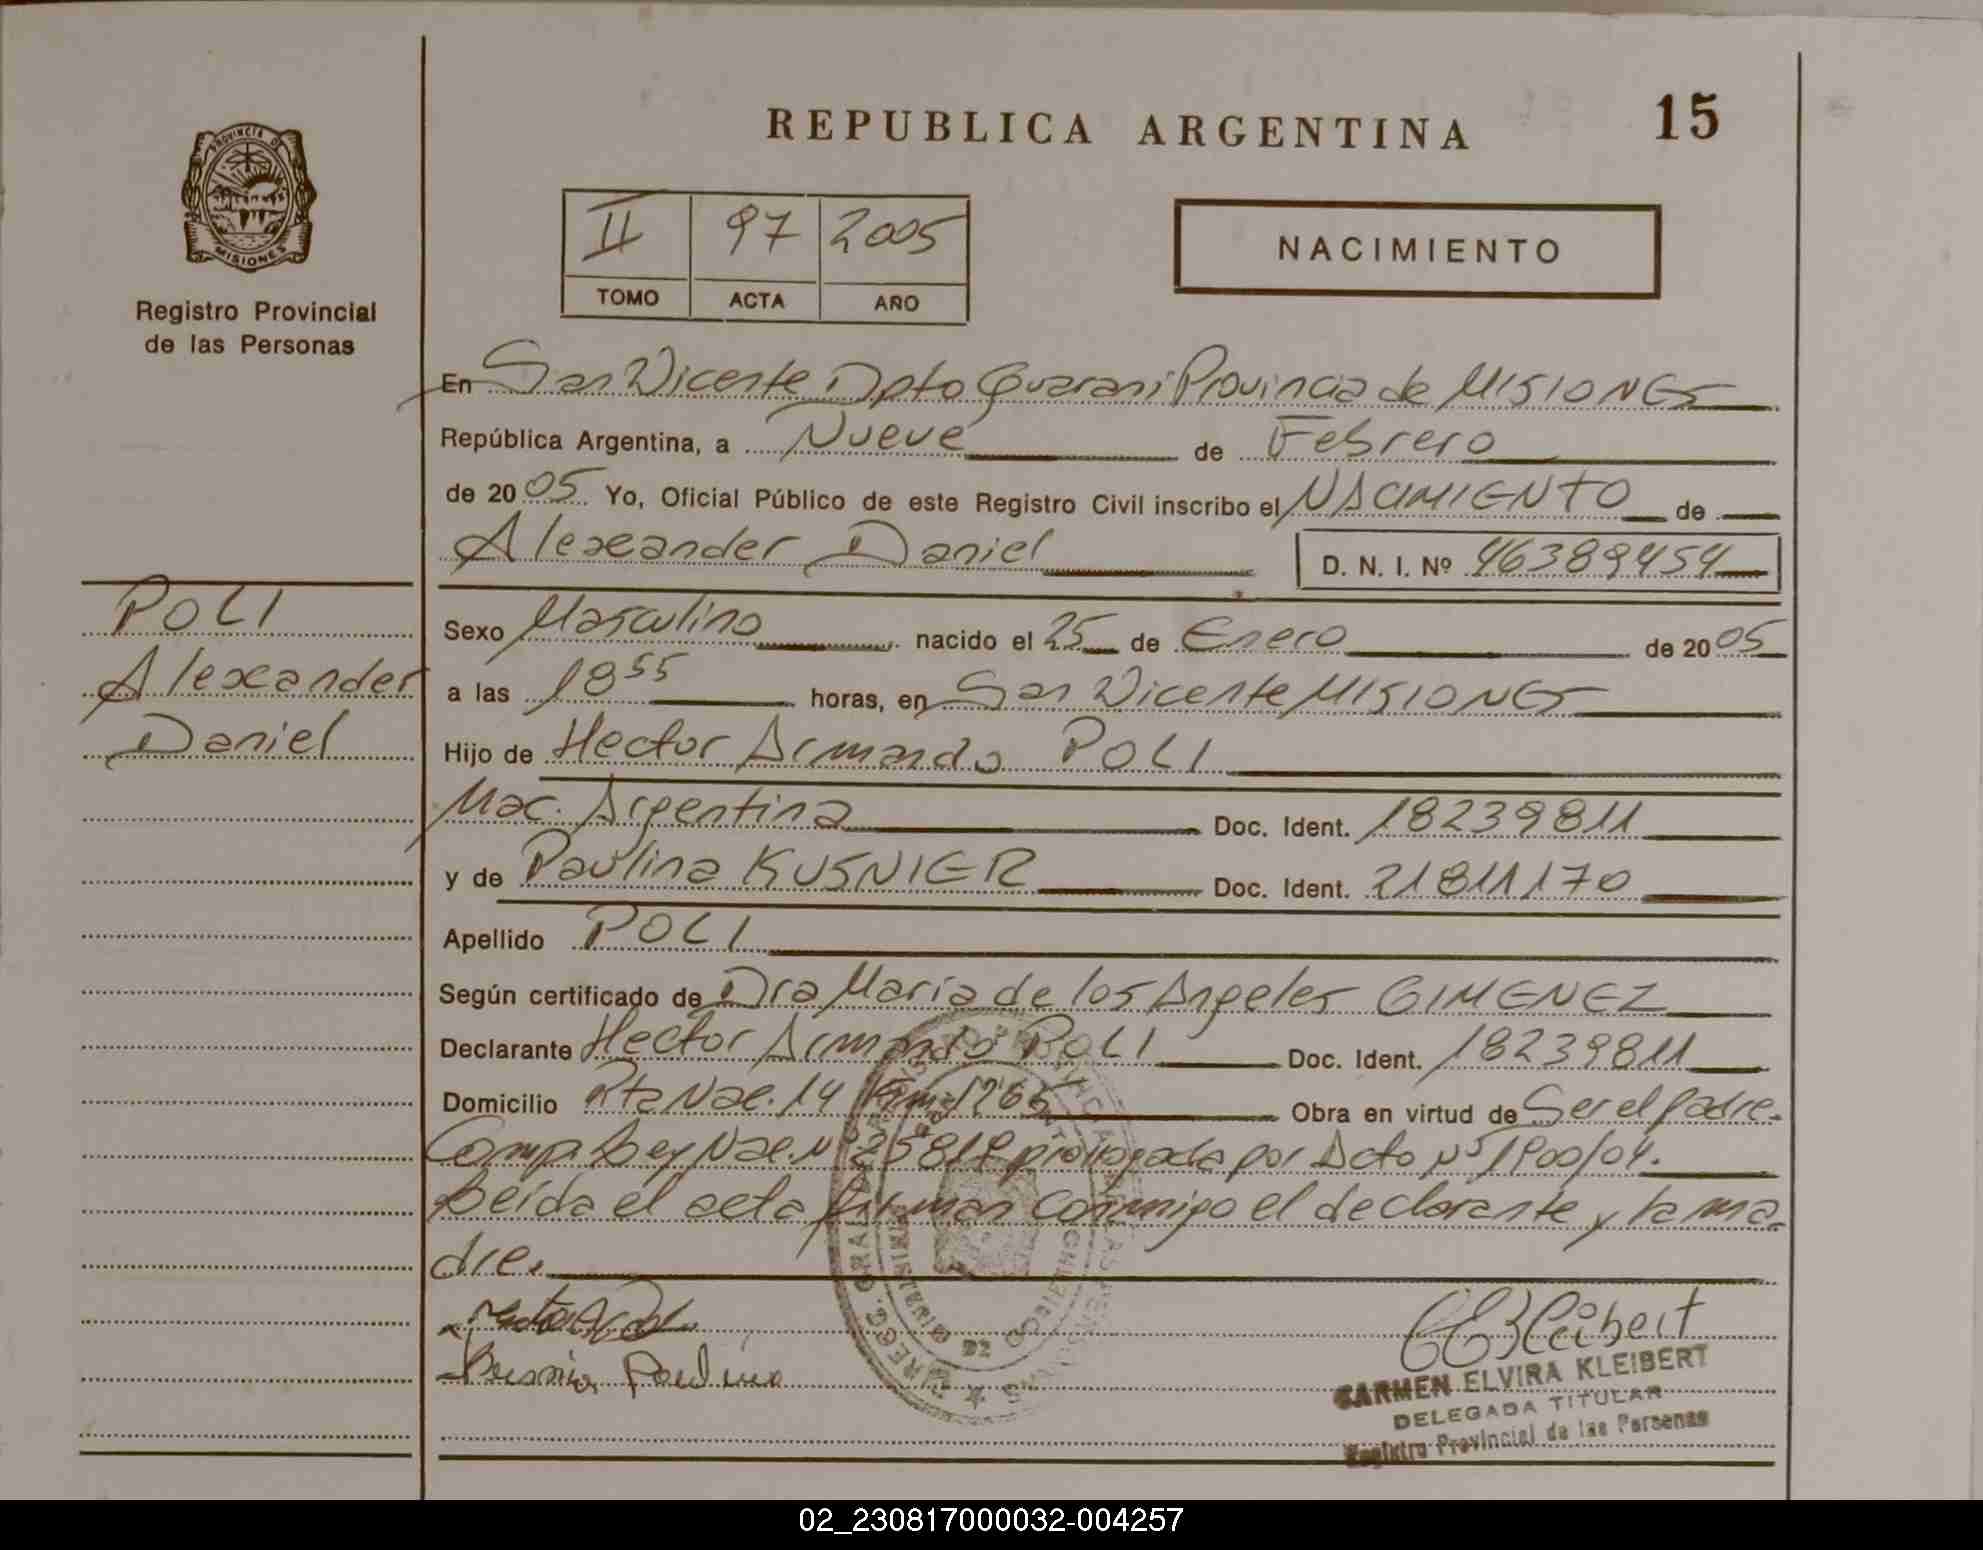 REPUBLICA ARGENTINA
15
PROVINCIA DE
MISIONES
Registro Provincial
de las Personas
II 97 2005
TOMO ACTA AÑO
NACIMIENTO
En San Vicente Dpto Guarani Provincia de MISIONES
República Argentina, a Nueve de Febrero
de 2005 Yo, Oficial Público de este Registro Civil inscribo el NACIMIENTO de
Alexander Daniel D. N. I. Nº 46389454
POLI
Alexander
Daniel
Sexo Masculino nacido el 25 de Enero de 2005
a las 18 55 horas, en San Vicente MISIONES
Hijo de Hector Armando POLI
Nac. Argentina Doc. Ident. 18239811
y de Paulina KUSNIER Doc. Ident. 21811170
Apellido POLI
Según certificado de Dra Maria de los Angeles GIMENEZ
Declarante Hector Armando POLI Doc. Ident. 18239811
Domicilio Rta Nac. 14 Km 1265 Obra en virtud de Ser el padre.
Ley Nac. N° 25819 prorrogada por Dcto Nº 1900/04.
Leida el acta firman conmigo el declarante y la ma-
dre.
Paulina
CEKleibert
CARMEN ELVIRA KLEIBERT
DELEGADA TITULAR
Registro Provincial de las Personas
02_230817000032-004257